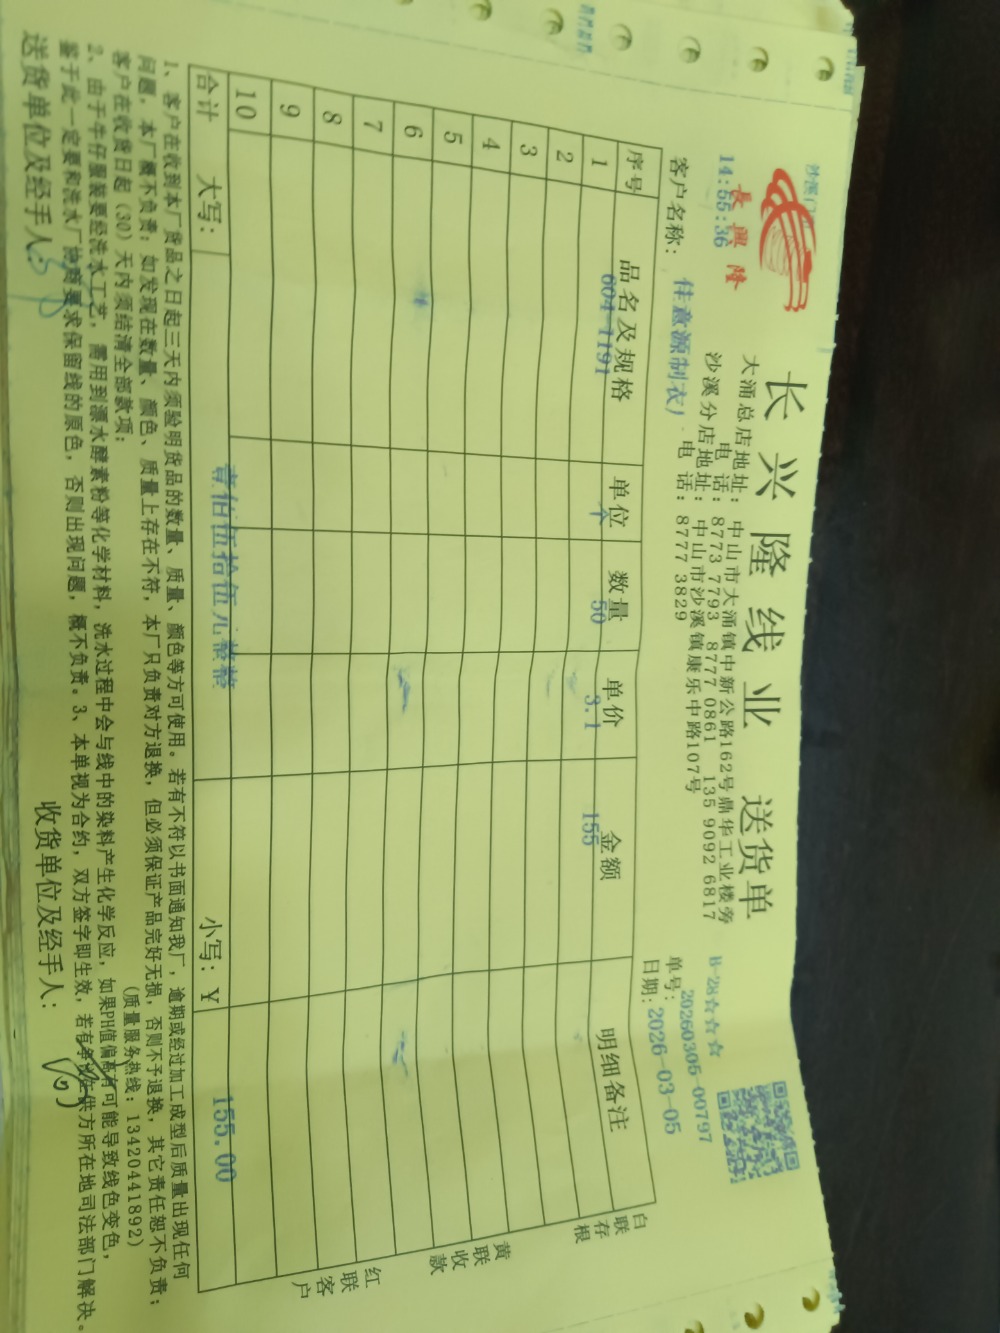 沙溪门
長興隆
14:55:36
长兴隆线业 送货单
大涌总店地址: 中山市大涌镇中新公路162号鼎华工业楼旁
电 话: 8773 7793 8777 0861 135 9092 6817
沙溪分店地址: 中山市沙溪镇康乐中路107号
电 话: 8777 3829
H-28☆☆☆
单号: 20260305-00797
日期: 2026-03-05
客户名称: 佳意源制衣厂
序号 品名及规格 单位 数量 单价 金额 明细备注
1 604-1191 个 50 3.1 155
2
3
4
5
6
7
8
9
10
合计 大写: 壹佰伍拾伍元整 小写: ¥ 155.00
白联存根
黄联收款
红联客户
1、客户在收到本厂货品之日起三天内须验明货品的数量、质量、颜色等方可使用。若有不符以书面通知我厂,逾期或经过加工成型后质量出现任何
问题,本厂概不负责;如发现在数量、颜色、质量上存在不符,本厂只负责对方退换,但必须保证产品完好无损,否则不予退换,其它责任恕不负责;
客户在收货日起(30)天内须结清全部款项; (质量服务热线: 13420441892)
2、由于牛仔服装要经洗水工艺,需用到漂水酵素粉等化学材料,洗水过程中会与线中的染料产生化学反应,如果PH值偏高有可能导致线色变色,
鉴于此一定要和洗水厂协商要求保留线的原色,否则出现问题,概不负责。3、本单视为合约,双方签字即生效,若有争议在供方所在地司法部门解决。
送货单位及经手人: 收货单位及经手人: